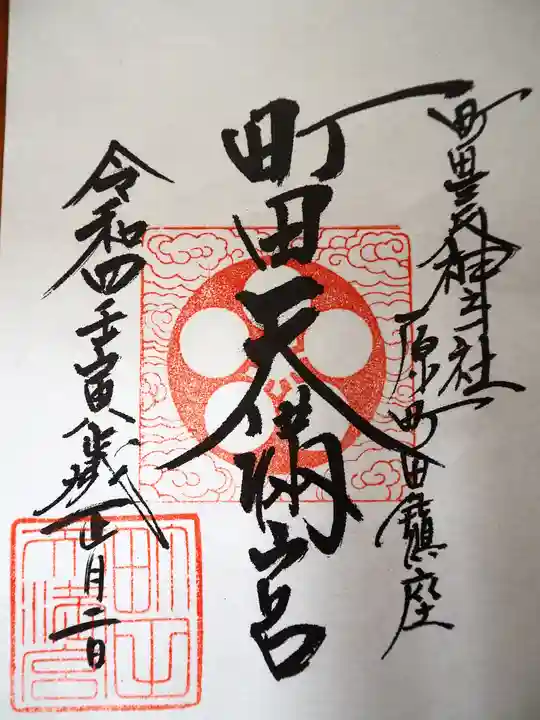 町田天神社 原町田鎮座
町田天満宮
令和四壬寅歳正月二日
町田天満宮